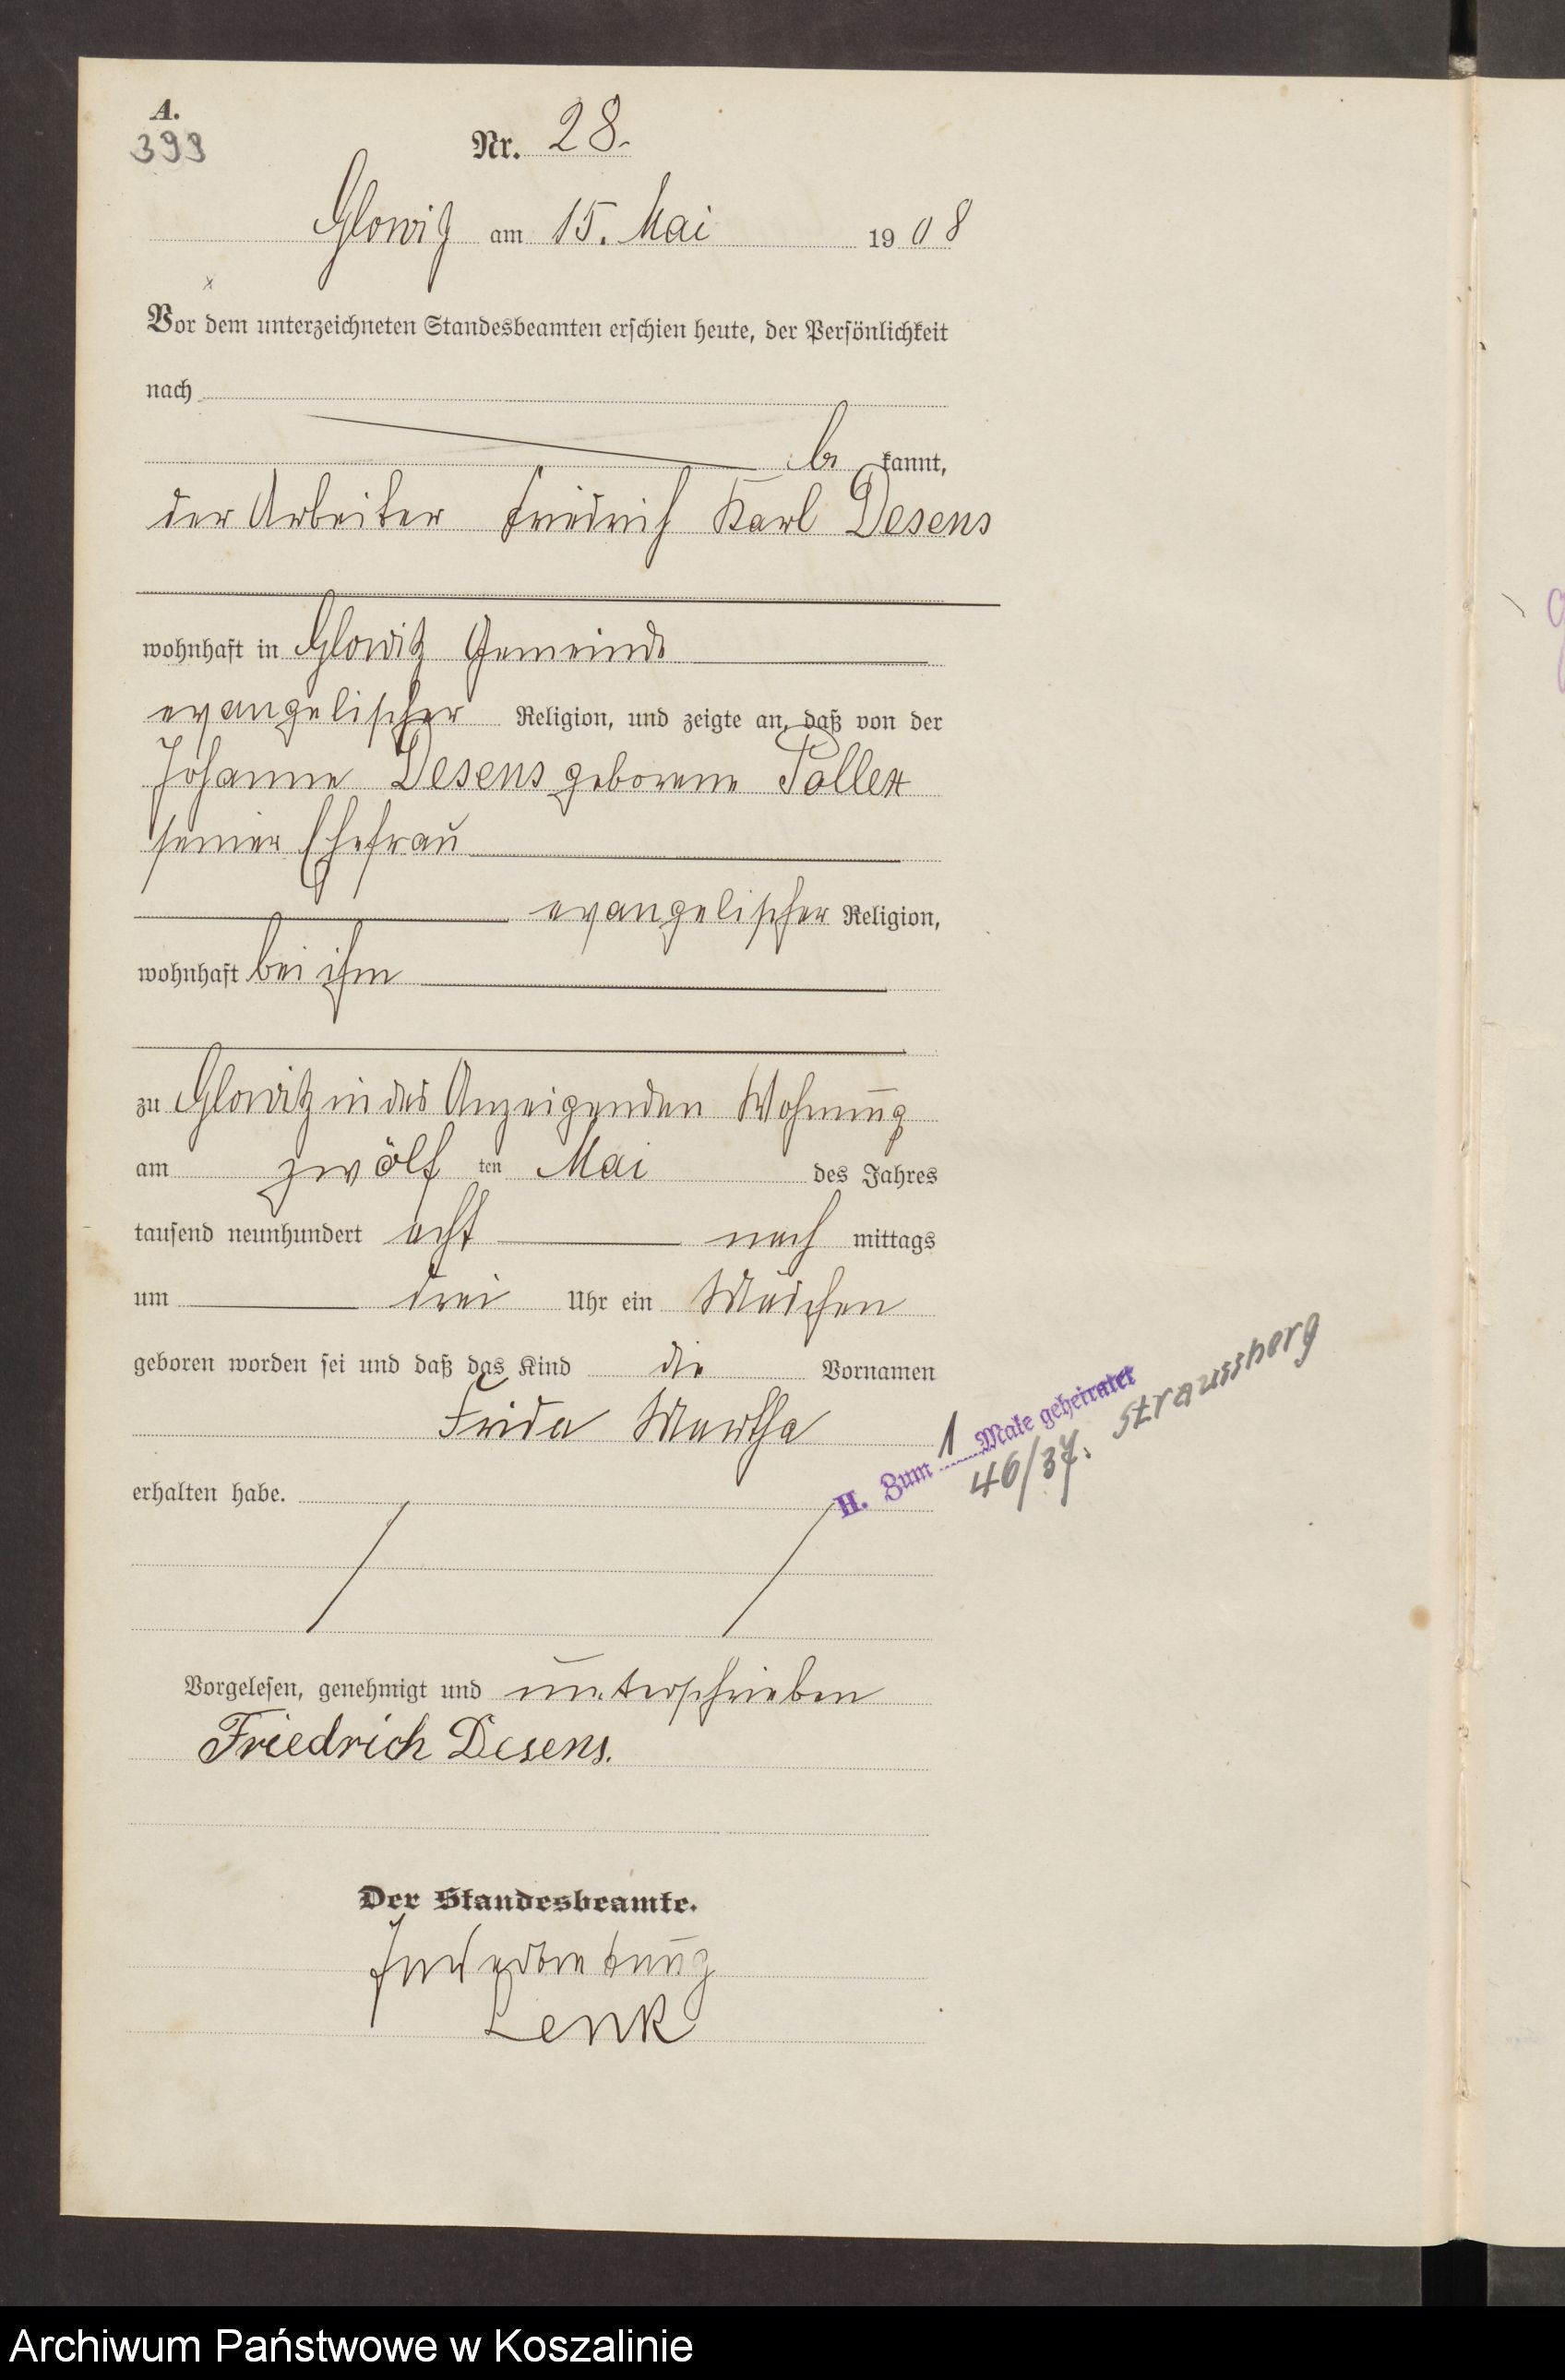 A.
399
Nr. 28.
Glowitz am 15. Mai 1908
Vor dem unterzeichneten Standesbeamten erschien heute, der Persönlichkeit
nach
be kannt,
der Arbeiter Friedrich Karl Desens
wohnhaft in Glowitz Gemeinde
evangelischer Religion, und zeigte an, daß von der
Johanne Desens geborene Pollex
seiner Ehefrau
evangelischer Religion,
wohnhaft bei ihm
zu Glowitz in des Anzeigenden Wohnung
am zwölf ten Mai des Jahres
tausend neunhundert acht nach mittags
um drei Uhr ein Mädchen
geboren worden sei und daß das Kind die Vornamen
Frida Martha
erhalten habe.
H. Zum 1 Male geheiratet
46/37. Straussberg
Vorgelesen, genehmigt und unterschrieben
Friedrich Desens.
Der Standesbeamte.
In Vertretung
Lenk
Archiwum Państwowe w Koszalinie